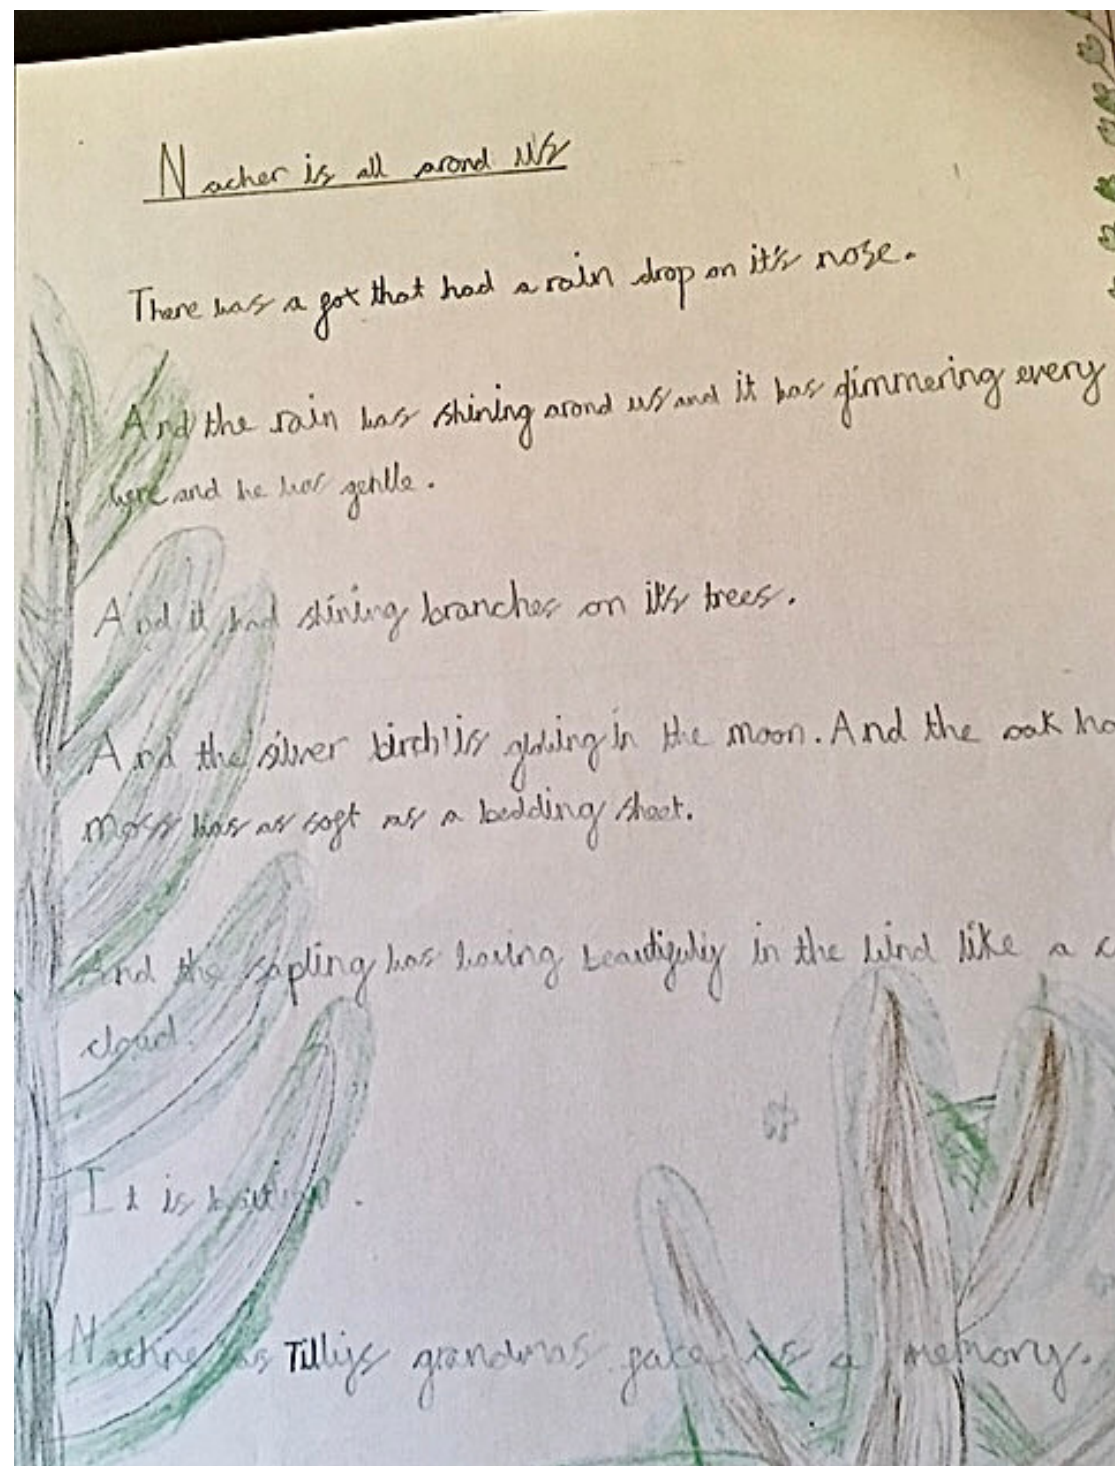 Nacher is all arond us
There was a fox that had a rain drop on it's nose.
And the rain was shining arond us and it was glimmering every
were and he was gentle.
And it had shining branches on it's trees.
And the silver birch is glowing in the moon. And the oak
moss was as soft as a bedding sheet.
And the sapling was waving beautifuliy in the wind like a
cloud.
It is
Tilliys grandmas a memory.